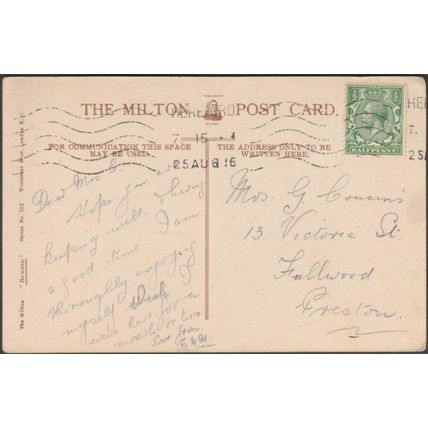 THE MILTON POST CARD.
HEREFORD
7. 15
25 AUG 15
HALFPENNY
FOR COMMUNICATION THIS SPACE
MAY BE USED.
THE ADDRESS ONLY TO BE
WRITTEN HERE.
The Milton "Bromo" Series No. 312 Woolstone Bros. London E.C.
Dear Mrs C.
Hope you are
keeping well, & having
a good time. I am
thoroughly enjoying
myself. Wish I
was here for a
month or two
Love from
Mrs. G. Cousins
13. Victoria St.
Fullwood
Preston.